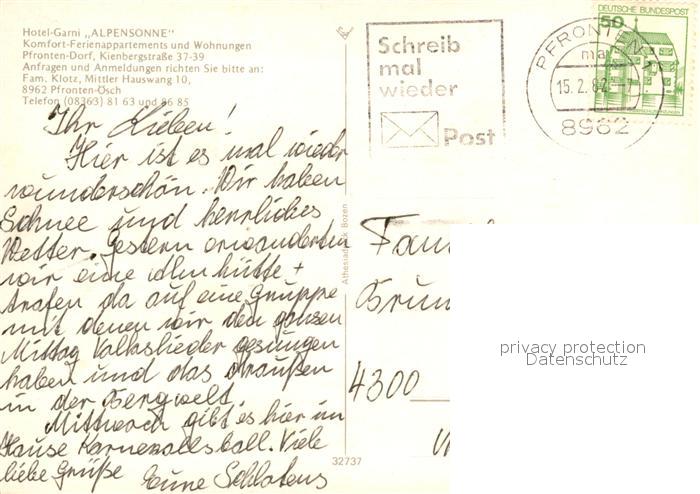 Hotel-Garni „ALPENSONNE"
Komfort-Ferienappartements und Wohnungen
Pfronten-Dorf, Kienbergstraße 37-39
Anfragen und Anmeldungen richten Sie bitte an:
Fam. Klotz, Mittler Hauswang 10,
8962 Pfronten-Ösch
Telefon (08363) 81 63 und 86 85
Ihr Lieben!
Hier ist es mal wieder
wunderschön. Wir haben
Schnee und herrliches
Wetter. Gestern erwanderten
wir eine Almhütte +
trafen da auf eine Gruppe
mit denen wir den ganzen
Mittag Volkslieder gesungen
haben und das draußen
in der Bergwelt.
Mittwoch gibt es hier im
Hause Karnevalsball. Viele
liebe Grüße Eure
Athesiadruck Bozen
32737
Schreib
mal
wieder
Post
PFRONTEN 1
15.2.82
8962
50
DEUTSCHE BUNDESPOST
4300
privacy protection
Datenschutz